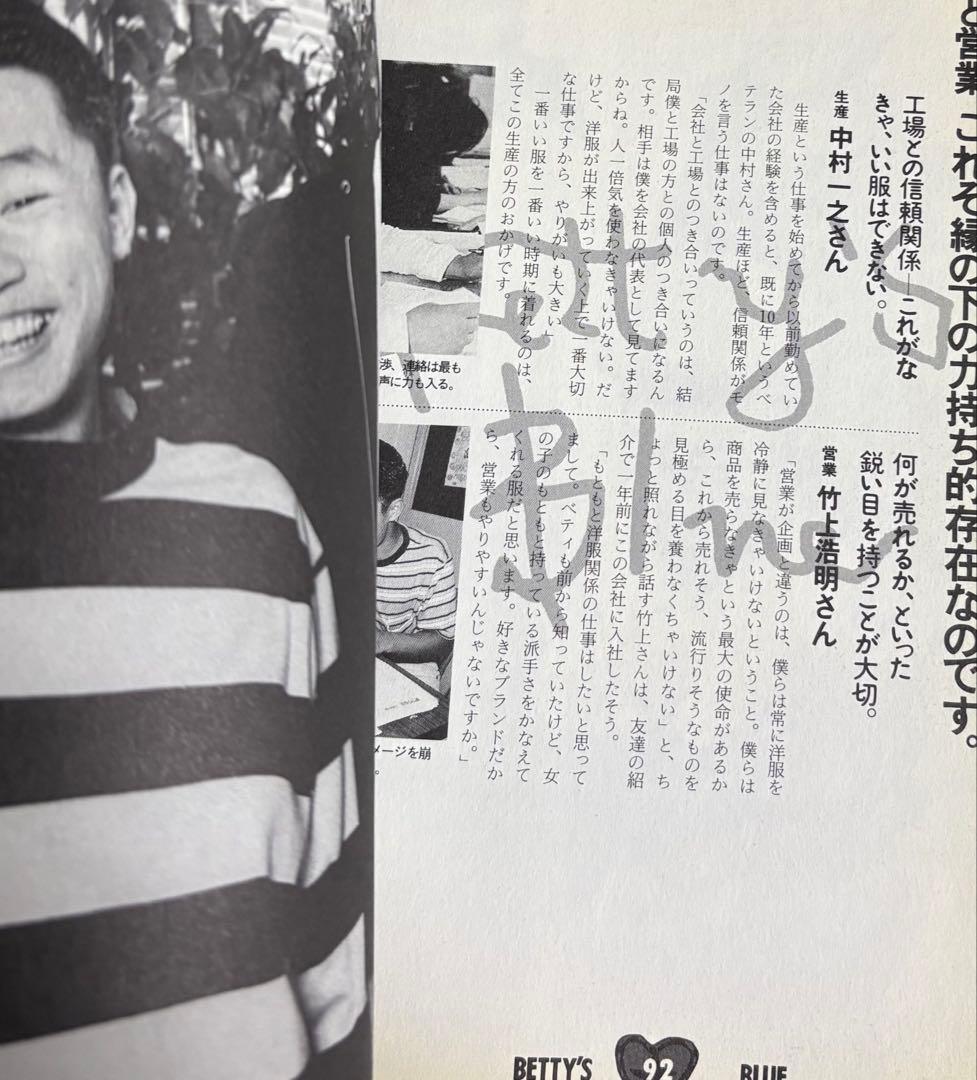 と営業 これぞ縁の下の力持ち的存在なのです。
工場との信頼関係―これがな
きゃ、いい服はできない。
生産 中村一之さん
生産という仕事を始めてから以前勤めてい
た会社の経験を含めると、既に10年というべ
テランの中村さん。生産ほど、信頼関係がモ
ノを言う仕事はないのです。
「会社と工場とのつき合いっていうのは、結
局僕と工場の方との個人のつき合いになるん
です。相手は僕を会社の代表として見てます
からね。人一倍気を使わなきゃいけない。だ
けど、洋服が出来上がっていく上で一番大切
な仕事ですから、やりがいも大きい」
一番いい服を一番いい時期に着れるのは、
全てこの生産の方のおかげです。
渉、連絡は最も
声に力も入る。
何が売れるか、といった
鋭い目を持つことが大切。
営業 竹上浩明さん
「営業が企画と違うのは、僕らは常に洋服を
冷静に見なきゃいけないということ。僕らは
商品を売らなきゃという最大の使命があるか
ら、これから売れそう、流行りそうなものを
見極める目を養わなくちゃいけない」と、ち
ょっと照れながら話す竹上さんは、友達の紹
介で一年前にこの会社に入社したそう。
「もともと洋服関係の仕事はしたいと思って
まして。ベティも前から知っていたけど、女
の子のもともと持っている派手さをかなえて
くれる服だと思います。好きなブランドだか
ら、営業もやりやすいんじゃないですか。」
メージを崩
。
Betty's
Blue
BETTY'S 92 BLUE